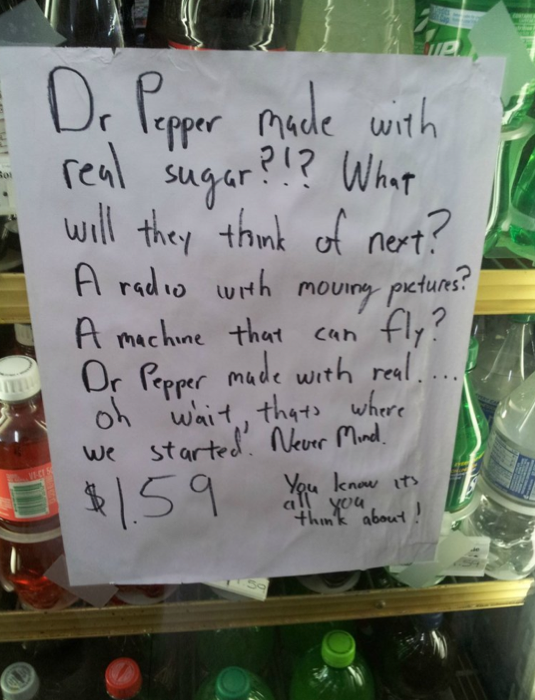 Dr Pepper made with
real sugar?!? What
will they think of next?
A radio with moving pictures?
A machine that can fly?
Dr Pepper made with real....
oh wait, thats where
we started. Never Mind.
$1.59
You know its
all you
think about!
UP
1.59